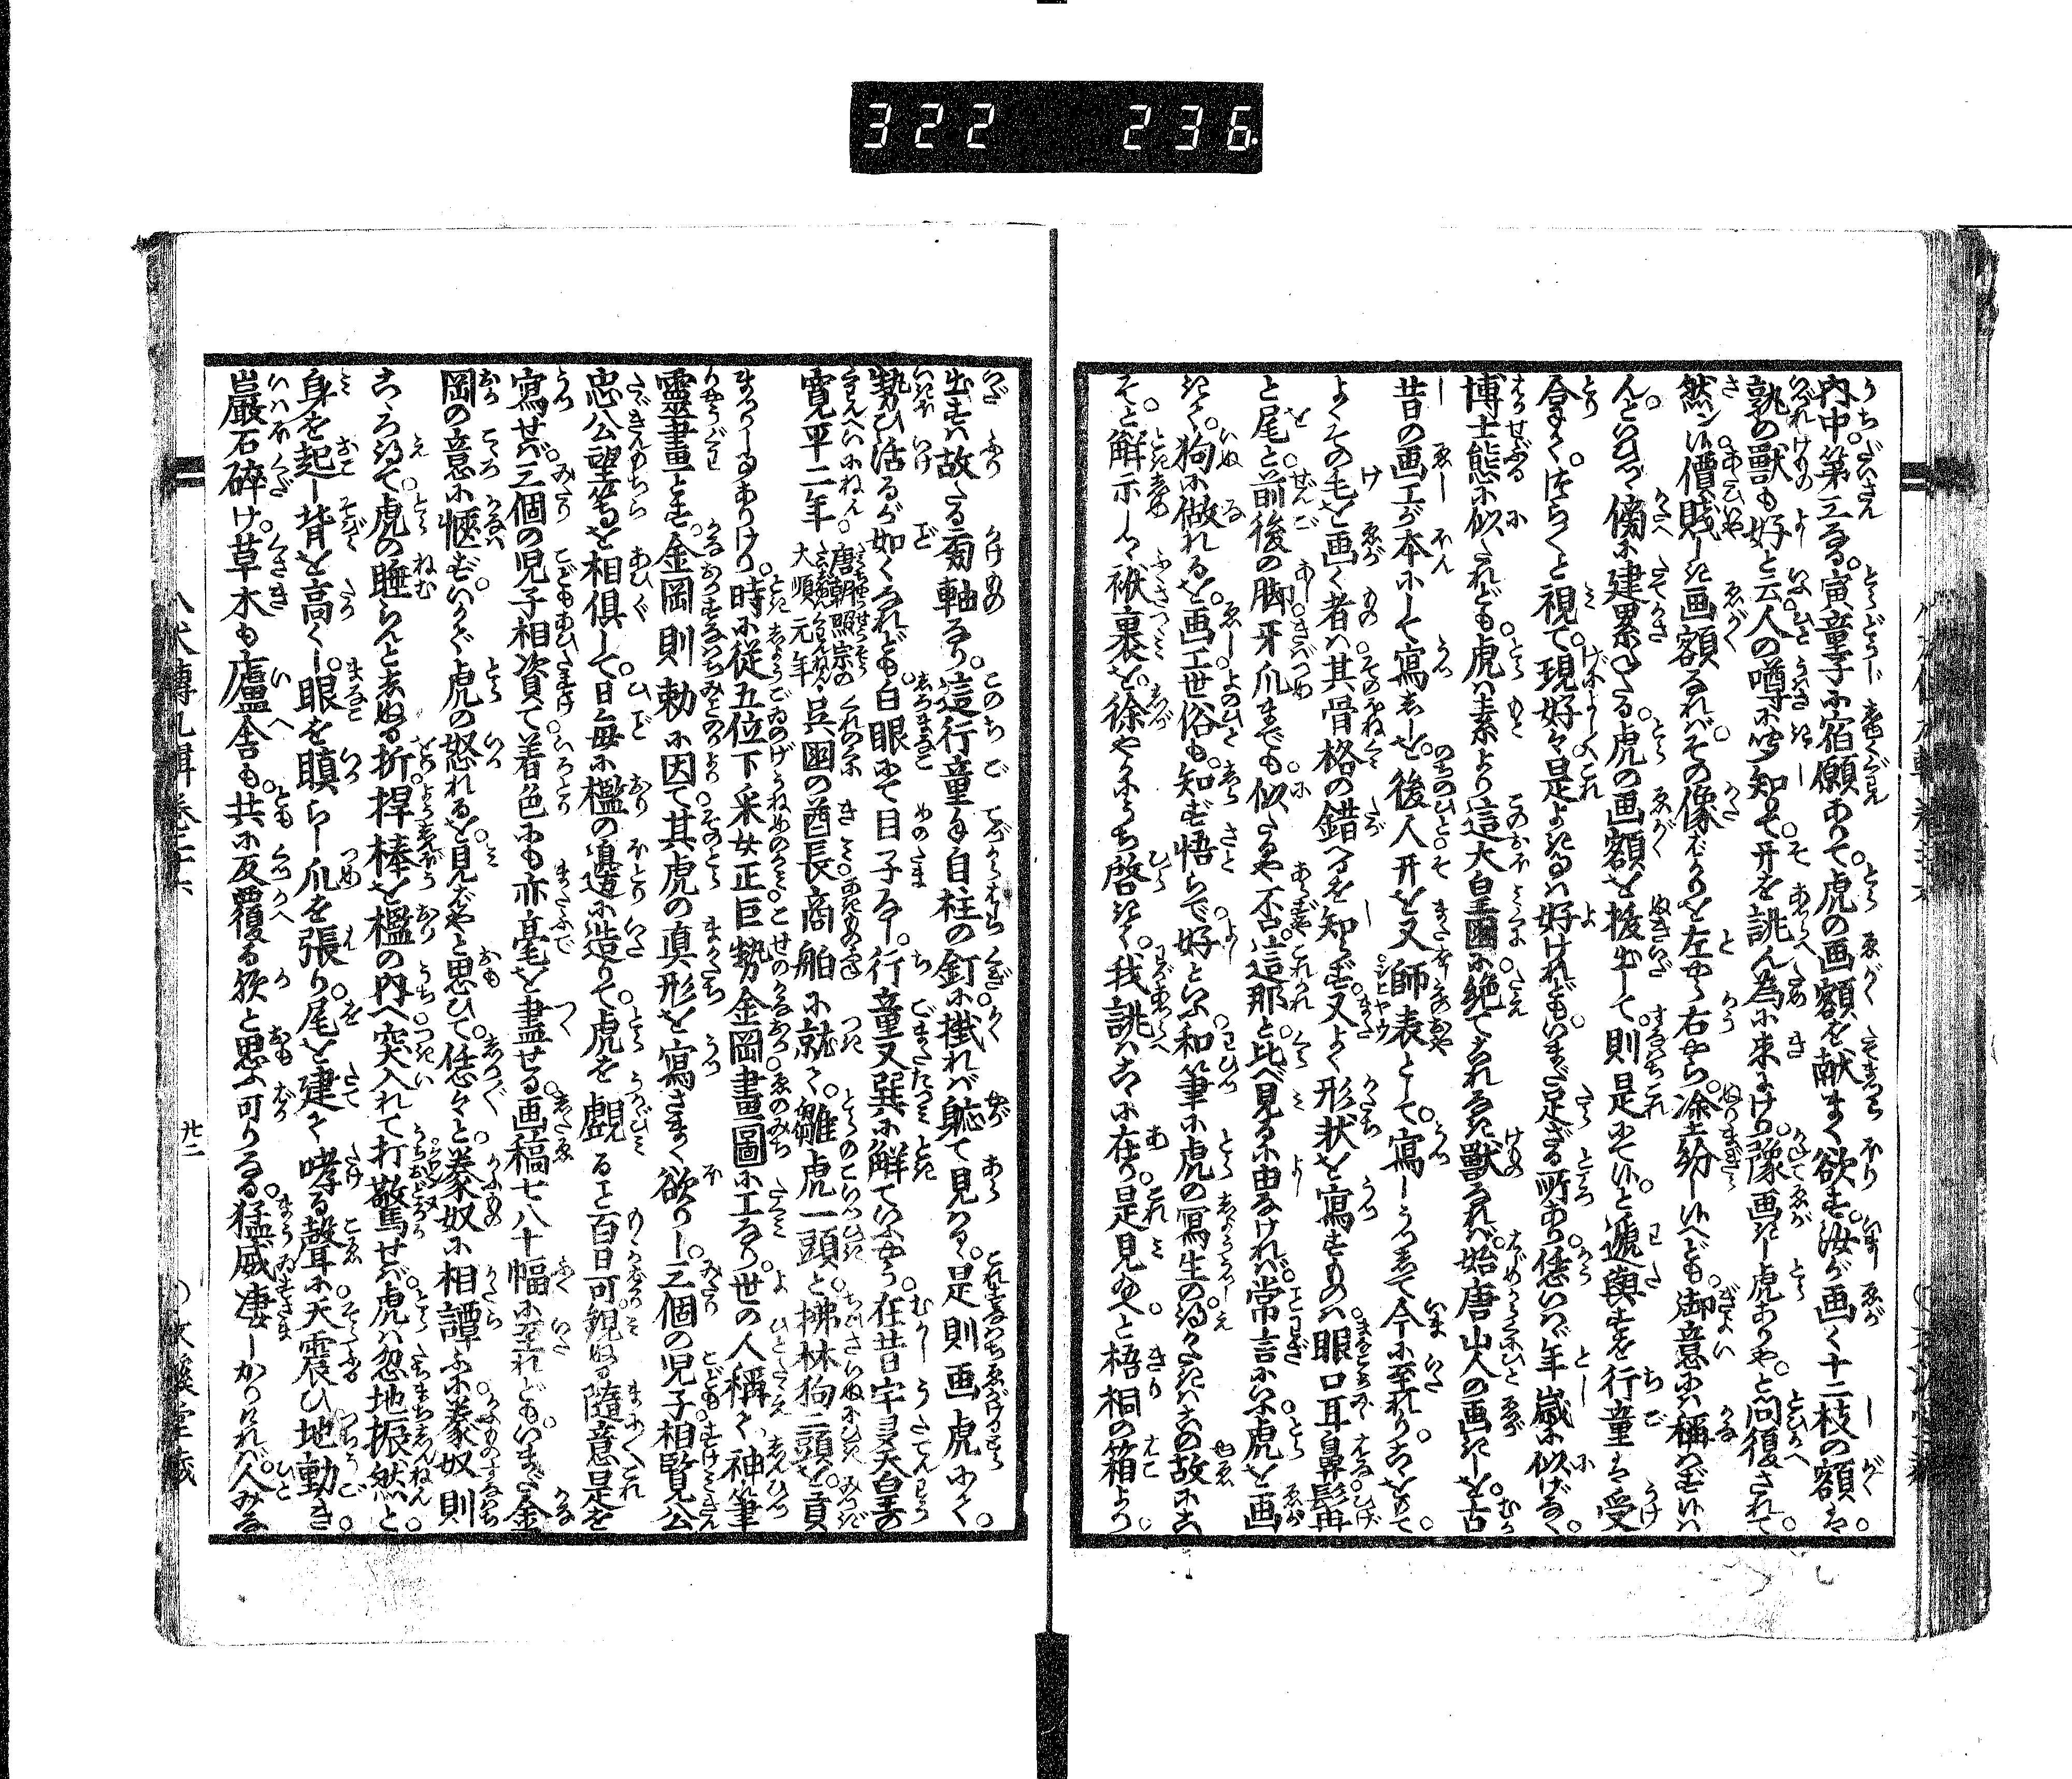 322 236
内中。第三なる。寅童子に宿願ありて。虎の画額を献まく欲す。汝が画く十二枝の額は。
孰の獣も好と云。人の噂に聞知りて。开を誂ん為に来にけり。豫画きし虎ありや。と問復されて
然ン候。價賤しき画額なれば。その像ばかりを左やら右やら。塗紛し候へども。御意には稱はず候は
ん。といひつゝ傍に建累ねたる。虎の画額を抜出して。則是にて候。と遞與すを行童は受
合なく。つら〳〵と視て。現好々。是よきには好けれども。いまだ足ざる所あり。恁いへば年歳に似げなく。
博士態に似たれども。虎は素より這大皇國に。絶てあれなき獣なれば。始唐山人の画きしを。古
昔の画工が本にして寫しゝを。後人开を又師表として。寫しうつして今に至れり。こをもて
よくその毛を画く者は。其骨格の錯へるを知らず。又よく形状を寫すものは。眼口耳鼻髯
と尾と。前後の脚牙爪までも。似たるや不や。這那と比べ見るに由なければ。常言にいふ虎を画
きて。狗に做れるを。画工世俗も。知ず悟らで好といふ。和筆に虎の寫生の得がたきはこの故にこ
そ。と解示しつゝ袱裏を。徐やかにうち啓きて。我誂はこゝに在り。是見給へ。と梧桐の箱より
出すは故たる匊軸なり。這行童手自柱の釘に掛れば。軈て見つる。是則画虎にて。
勢ひ活るが如くなれども。白眼にて目子なし。行童又巽に解ていふやう。在昔宇多天皇の
寛平二年。唐朝照宗の大順元年。呉國の酋長商舶に就て。雛虎一頭と。拂林狗二頭を。貢
まつりし事ありけり。時に従五位下采女正巨勢金岡。畫圖に工なり。世の人稱て。神筆
靈畫とす。金岡則勅に因て。其虎の真形を寫さまく欲りし。三個の児子相覧公
忠公望等を相倶して。日毎に檻の邊に造りて。虎を覷ること百日可。觀ぬる隨意是を
寫せば。三個の児子相資て。着色にも亦毫を盡せる画稿七八十幅に至れども。いまだ金
岡の意に愜ず。いかで虎の怒れるを。見ばやと思ひて。恁々と。豢奴に相譚ふに。豢奴則
こゝろ得て。虎の睡らんとしぬる折。桿棒を檻の内へ突入れて打驚せば。虎は忽地振然と
身を起し。背を高くし。眼を瞋らし。爪を張り。尾を建て。哮る聲に天震ひ地動き
巖石碎け。草木も廬舎も。共に反覆る歟と思ふ可りなる。猛威凄しかりければ。人みな
八犬傳九輯巻三十六
廿二